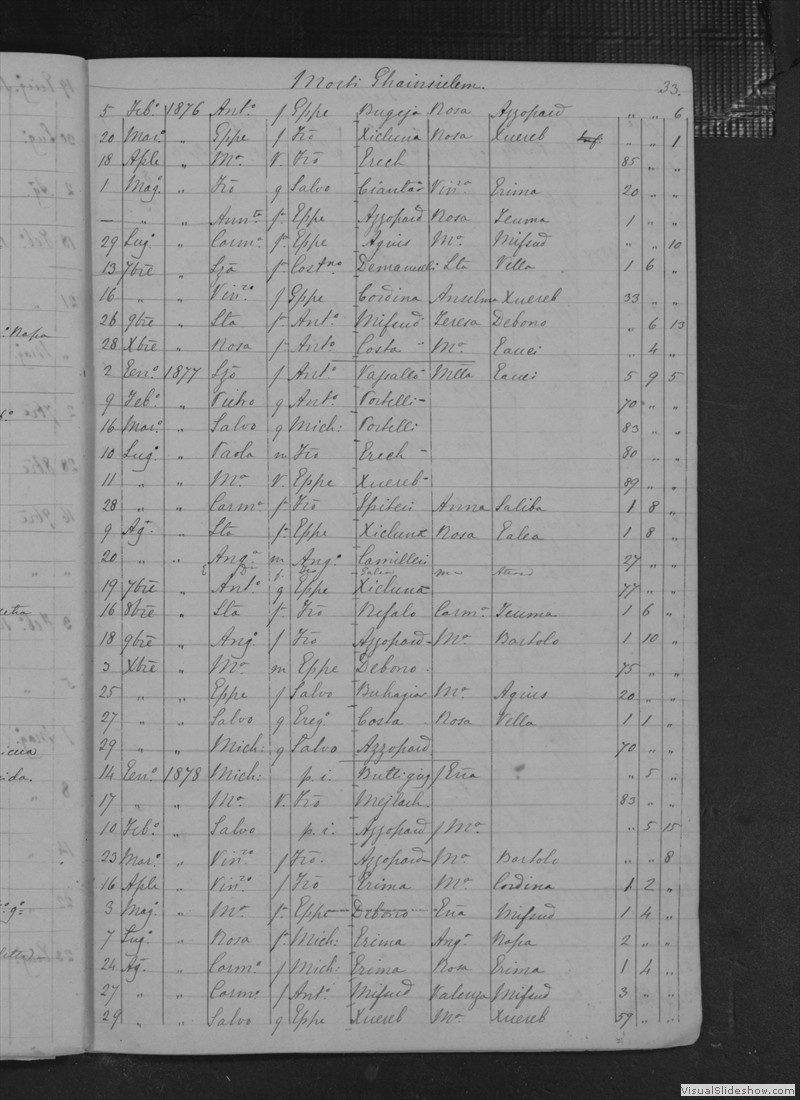 Morti Ghainsielem. 33.
5 Feb.o 1876 Ant.o f Eppe Bugeja Rosa Azzopard „ „ 6
20 Mar.o „ Eppe f Fro Xicluna Rosa Xuereb „ „ 1
18 Aple „ Ma. V. Fro Erech 85 „ „
1 Mag. „ Fro g Salvo Ciantar Vin.a Erima 20 „ „
— „ „ Ann.ta f. Eppe Azzopard Rosa Teuma 1 „ „
29 Lug. „ Carm.a f. Eppe Agius Ma. Mifsud „ „ 10
13 7bre „ f Demanueli Sta Vella 1 6 „
16 „ „ Vin.zo f Eppe Cordina Anselma Xuereb 33 „ „
26 9bre „ Sta f. Ant.o Mifsud Teresa Debono „ 6 13
28 Xbre „ Rosa f Ant.o Costa „ Ma. Eauci „ 4 „
2 Een.o 1877 f Ant.o Vapallo Eauci 5 9 5
9 Feb.o „ Pietro g Ant.o Portelli - 70 „ „
16 Mar.o „ Salvo g Mich: Portelli 83 „ „
10 Lug. „ Paola m Fro Erech - 80 „ „
11 „ „ Ma. V. Eppe Xuereb - 89 „ „
28 „ „ Carm.a f. Fro Spiteri Anna Saliba 1 8 „
9 Ag. „ Sta f. Eppe Xicluna Rosa Ealea 1 8 „
20 „ „ Ang.a m Ang.o Camilleri 27 „ „
19 7bre „ Ant.o g Eppe Xicluna 77 „ „
16 8bre „ Sta f. Fro Refalo Carm.a Teuma 1 6 „
18 9bre „ Ang.o f Fro Azzopard - Ma. Bartolo 1 10 „
3 Xbre „ Ma. m Eppe Debono - 75 „ „
25 „ „ Eppe f Salvo Buhagiar Ma. Agius 20 „ „
27 „ „ Salvo g Ereg.o Costa Rosa Vella 1 1 „
29 „ „ Mich: g Salvo Azzopard 70 „ „
14 Een.o 1878 Mich: p. i. Buttigieg f Eña „ 5 „
17 „ „ Ma. V. Fro Mejlach. 83 „ „
10 Feb.o „ Salvo p. i. Azzopard f Ma. „ 5 15
23 Mar.o „ Vin.zo f Fro. Azzopard - Ma. Bartolo „ „ 8
16 Aple „ Vin.zo f Fro Erima Ma. Cordina 1 2 „
3 Mag. „ Ma. f. Eppe - Debono - Eña Mifsud 1 4 „
7 Lug. „ Rosa f. Mich: Erima Ang.a Rapa 2 „ „
24 Ag. „ Carm.o f Mich: Erima Rosa Erima 1 4 „
27 „ „ Carm.o f Ant.o Mifsud Valenza Mifsud 3 „ „
29 „ „ Salvo g Eppe Xuereb Ma. Xuereb 59 „ „
VisualSlideshow.com